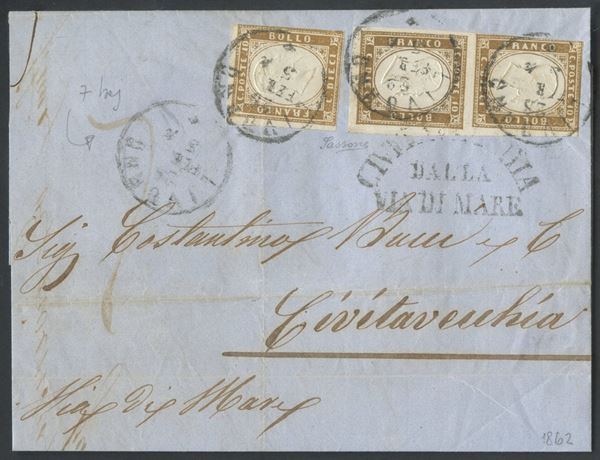 BOLLO
FRANCO
FRANCO
C. POSTE 10
C. DIECI
FRANCO
BOLLO
BOLLO
LIVORNO
5
FEB
7 baj
Sassone
LIVORNO
FEB
CIVITAVECCHIA
DALLA
VIA DI MARE
Sig Costantino Bucci e C
Civitavecchia
Via di Mare
1862